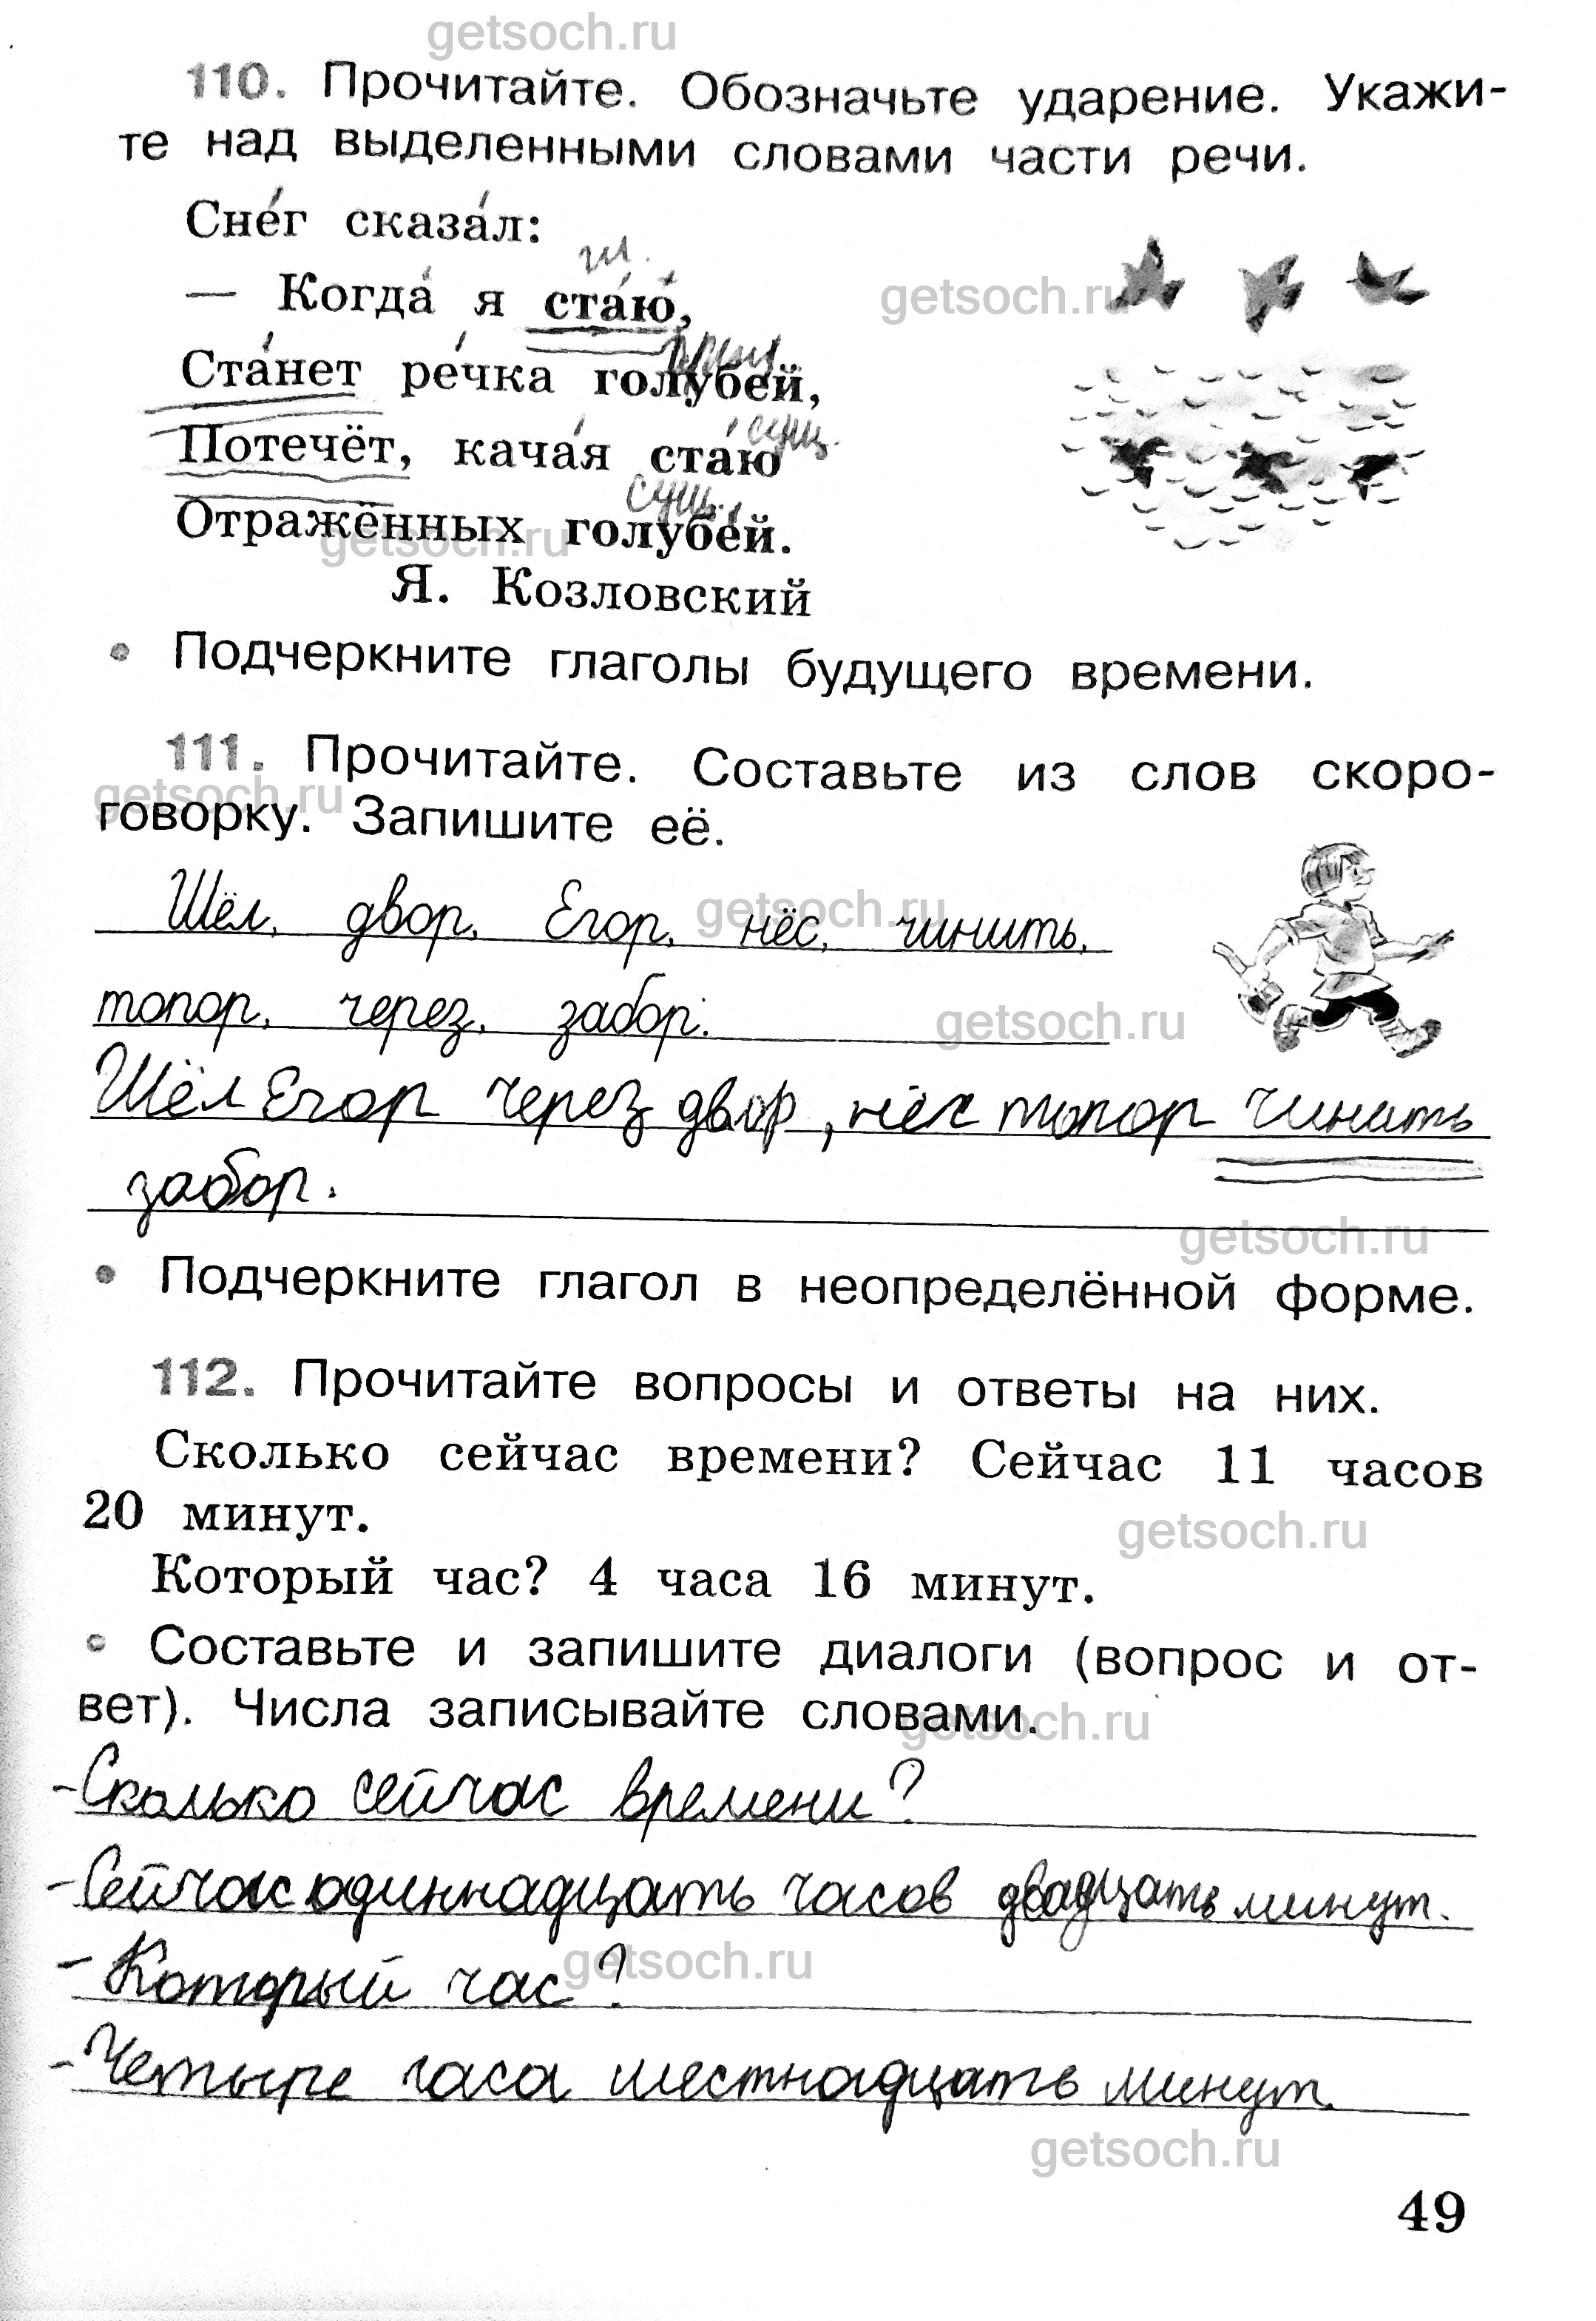 getsoch.ru
110. Прочитайте. Обозначьте ударение. Укажи-
те над выделенными словами части речи.
Сне́г сказа́л:
гл.
— Когда́ я ста́ю,
getsoch.ru
Ста́нет ре́чка голубей,
сущ.
Потечёт, кача́я ста́ю
сущ.
Отражённых голубе́й.
getsoch.ru
Я. Козловский
• Подчеркните глаголы будущего времени.
111. Прочитайте. Составьте из слов скоро-
getsoch.ru
говорку. Запишите её.
Шёл, двор, Егор, нёс, чинить,
getsoch.ru
топор, через, забор.
getsoch.ru
Шёл Егор через двор, нёс топор чинить
забор.
getsoch.ru
• Подчеркните глагол в неопределённой форме.
112. Прочитайте вопросы и ответы на них.
Сколько сейчас времени? Сейчас 11 часов
20 минут.
getsoch.ru
Который час? 4 часа 16 минут.
• Составьте и запишите диалоги (вопрос и от-
вет). Числа записывайте словами.
getsoch.ru
- Сколько сейчас времени?
- Сейчас одиннадцать часов двадцать минут.
- Который час?
getsoch.ru
- Четыре часа шестнадцать минут.
getsoch.ru
49